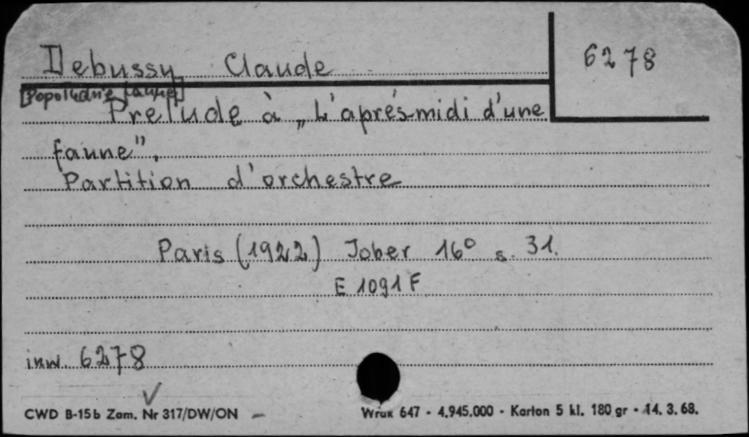 Debussy Claude
6278
[Popołudnie fauna]
Prélude à „L'après-midi d'une
faune".
Partition d'orchestre
Paris (1922) Jober 16° s. 31.
E 1091 F
inw. 6278
CWD B-15b Zam. Nr 317/DW/ON - Wrux 647 - 4.945.000 - Karton 5 kl. 180 gr - 14. 3. 68.